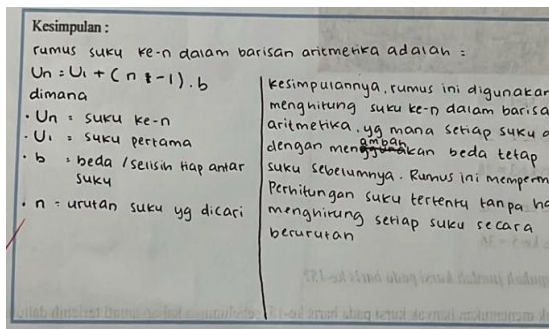 Kesimpulan :
rumus suku ke-n dalam barisan aritmetika adalah :
Un = U1 + (n - 1) . b
dimana
• Un = suku ke-n
• U1 = suku pertama
• b = beda / selisih tiap antar
suku
• n = urutan suku yg dicari
Kesimpulannya, rumus ini digunakan
menghitung suku ke-n dalam barisa
aritmetika, yg mana setiap suku d
dengan menambahkan beda tetap
suku sebelumnya. Rumus ini memperm
Perhitungan suku tertentu tanpa ha
menghitung setiap suku secara
berurutan